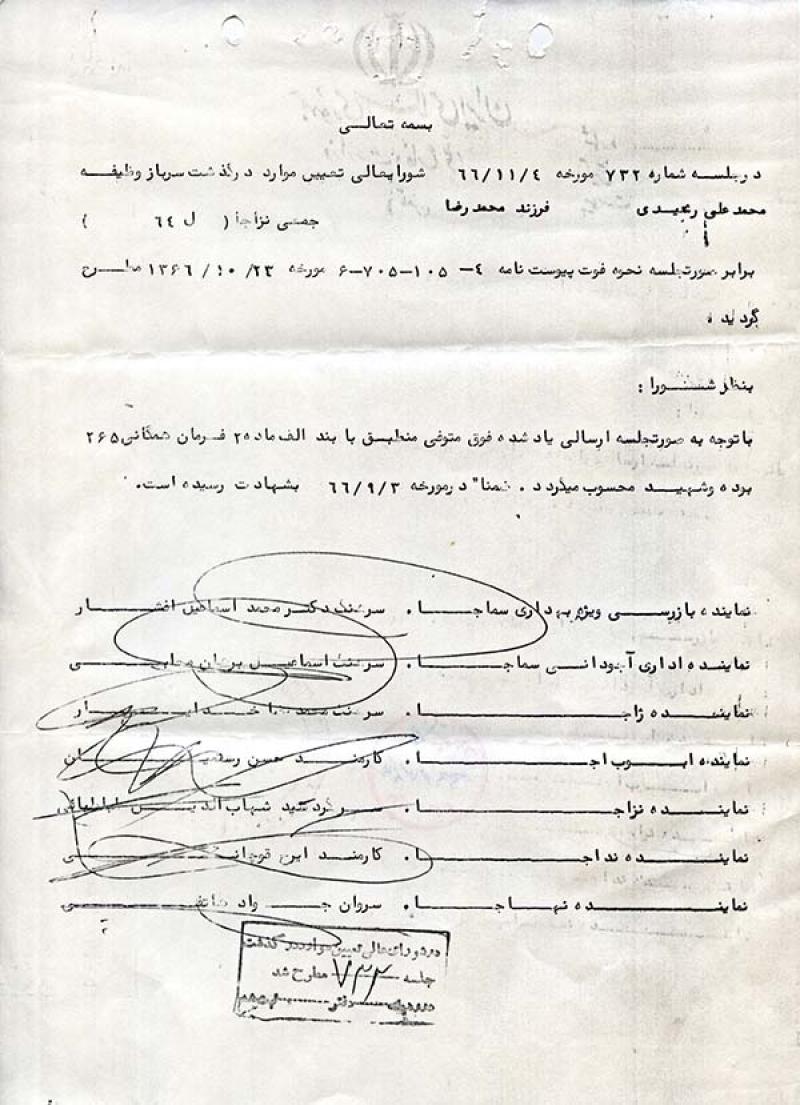 بسمه تعالی
در جلسه شماره ۷۳۲ مورخه ۶۶/۱۱/۴ شورایعالی تعیین موارد درگذشت سرباز وظیفه
محمد علی رنجیدی فرزند محمد رضا جمعی نزاجا ( ل ۶۴ )
برابر صورتجلسه نحوه فوت پیوست نامه ۴-۱۰۵-۷۰۵-۶ مورخه ۱۳۶۶/۱۰/۲۳ مطرح
گردید .
بنظر شورا :
با توجه به صورتجلسه ارسالی یاد شده فوق متوفی منطبق با بند الف ماده ۲ فرمان همگانی ۲۶۵
بوده و شهید محسوب میگردد . ضمنا" در مورخه ۶۶/۹/۳ بشهادت رسیده است .
نماینده بازرسی ویژه بهداری سماجا . سرهنگ دکتر محمد اسماعیل افشار
نماینده اداری آجودانی سماجا . سرهنگ اسماعیل
نماینده ژاجا . سرهنگ
نماینده ابوب اجا . کارمند حسن
نماینده نزاجا . سرگرد سید شهاب الدین طباطبائی
نماینده نداجا . کارمند
نماینده نهاجا . سروان جواد
در شورای عالی تعیین موارد درگذشت
جلسه ۷۳۲ مطرح شد
دفتر